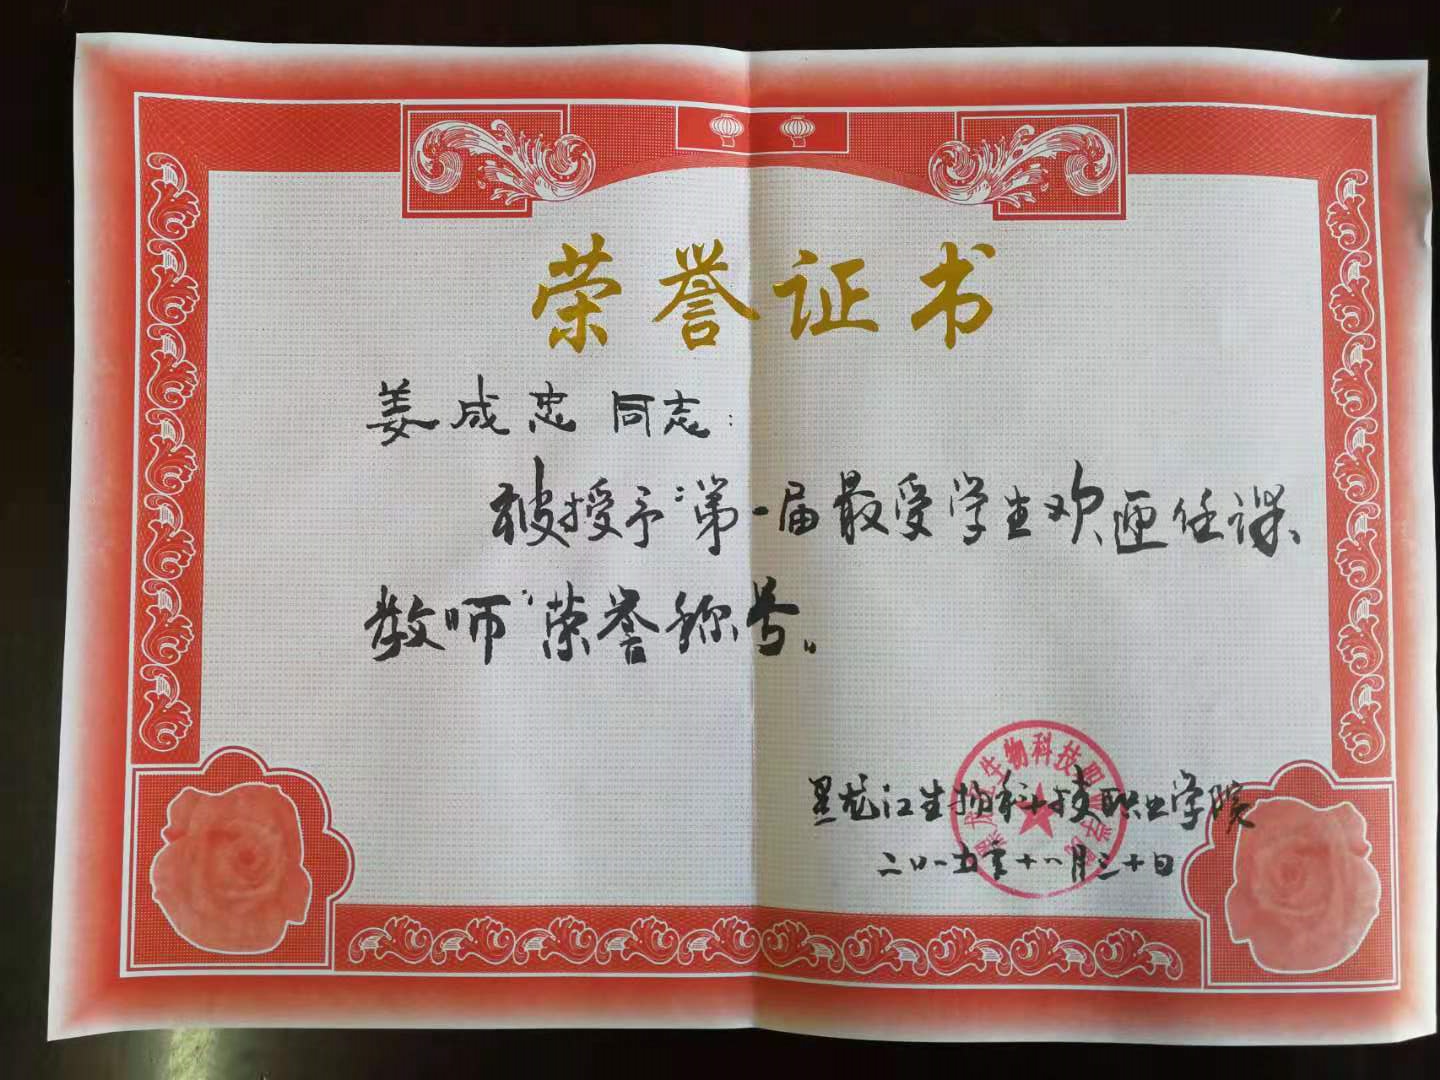 荣誉证书
姜成忠同志：
被授予“第一届最受学生欢迎任课
教师”荣誉称号。
黑龙江生物科技职业学院
二〇一五年十一月三十日
黑龙江生物科技职业学院